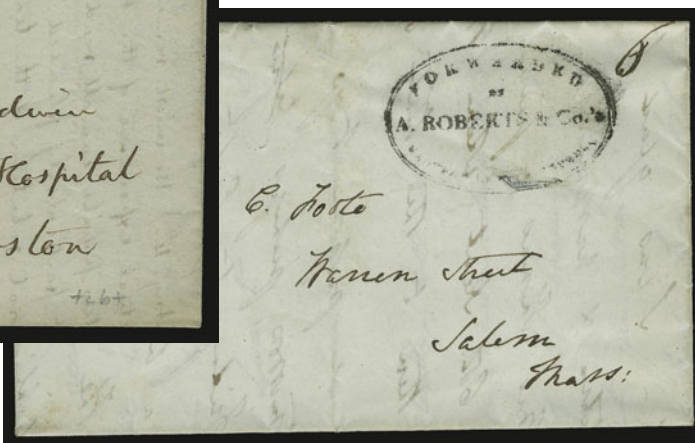 dwin
Hospital
ston
FORWARDED
BY
A. ROBERTS & Co.'s
6
C. Foote
Warren Street
Salem
Mass: